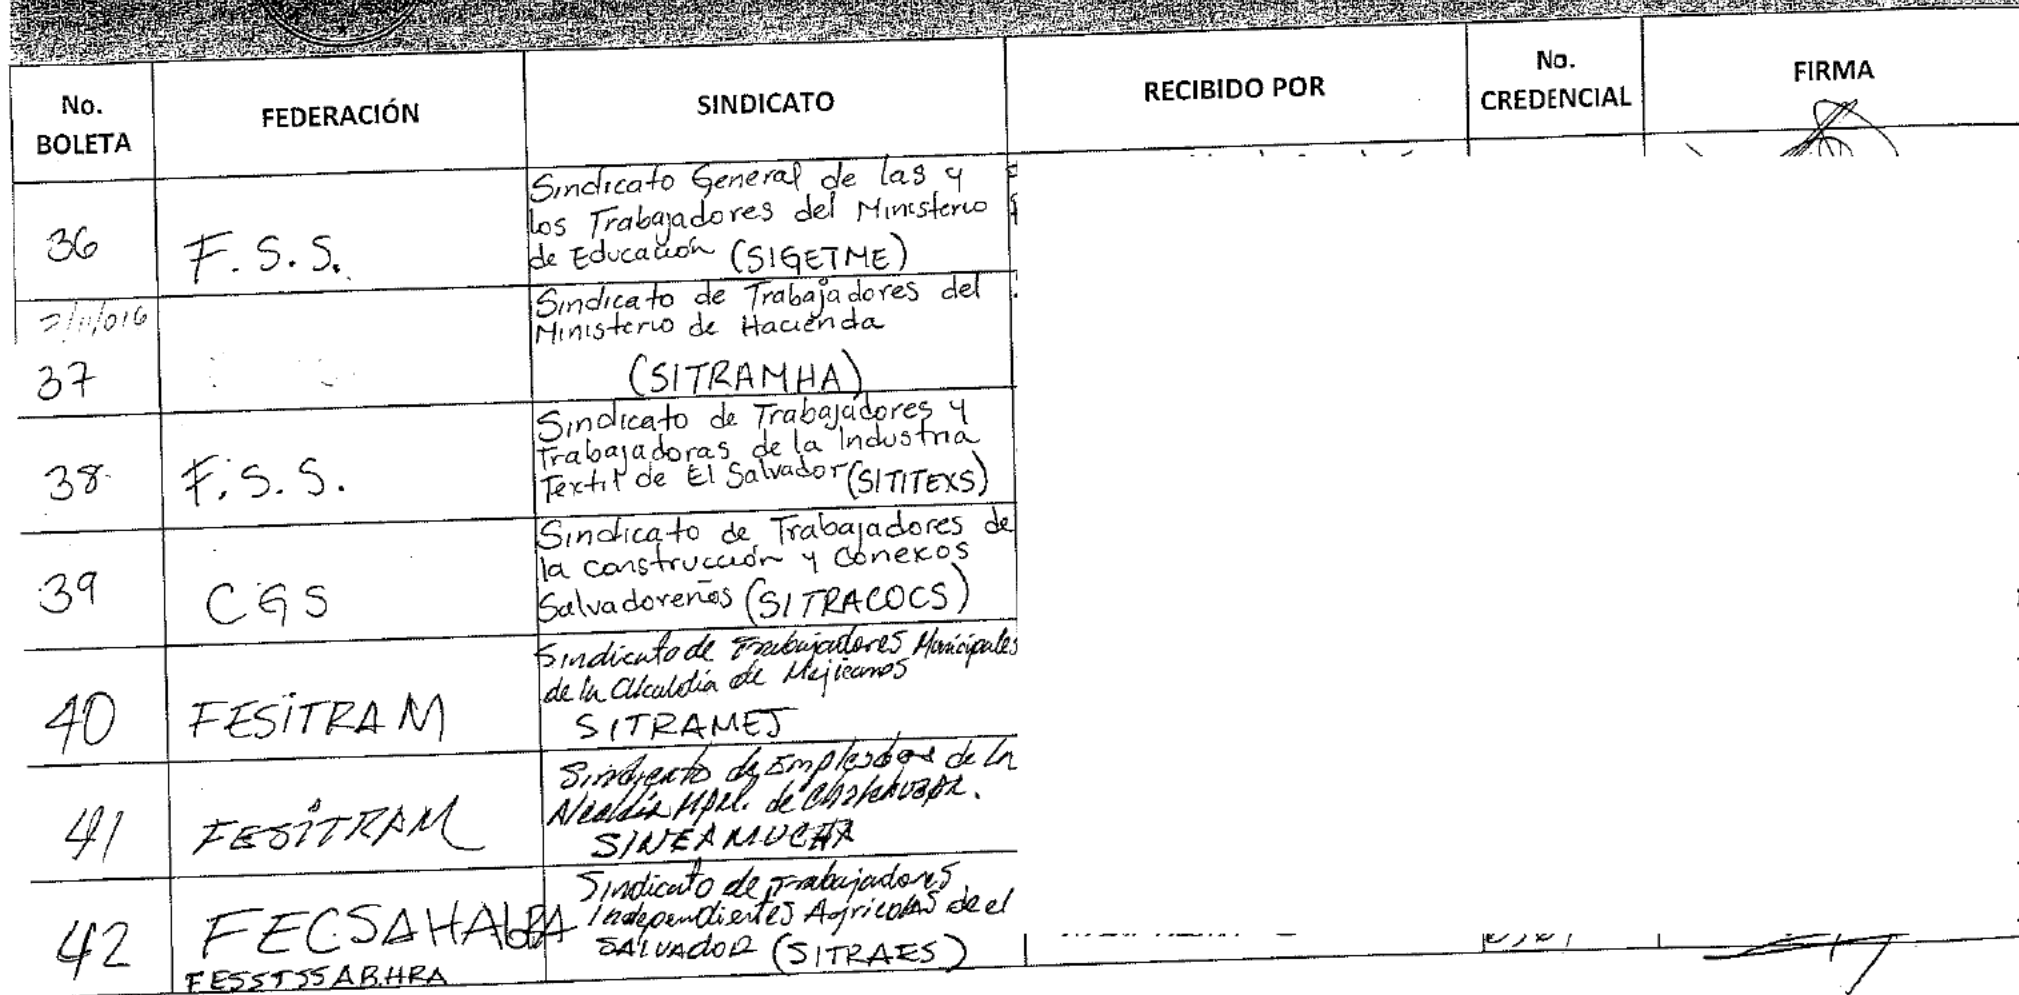 No. BOLETA
FEDERACIÓN
SINDICATO
RECIBIDO POR
No. CREDENCIAL
FIRMA
36
F.S.S.
Sindicato General de las y
los Trabajadores del Ministerio
de Educación (SIGETME)
37
Sindicato de Trabajadores del
Ministerio de Hacienda
(SITRAMHA)
38
F.S.S.
Sindicato de Trabajadores y
Trabajadoras de la Industria
Textil de El Salvador (SITITEXS)
39
CGS
Sindicato de Trabajadores de
la construcción y Conexos
Salvadoreños (SITRACOCS)
40
FESITRAM
Sindicato de Trabajadores Municipales
de la Alcaldía de Mejicanos
SITRAMEJ
41
FESITRAM
Sindicato de Empleados de la
Alcaldía Mpal. de
SINEAMUCHA
42
Sindicato de Trabajadores
Independientes Agricolas de el
SALVADOR (SITRAES)